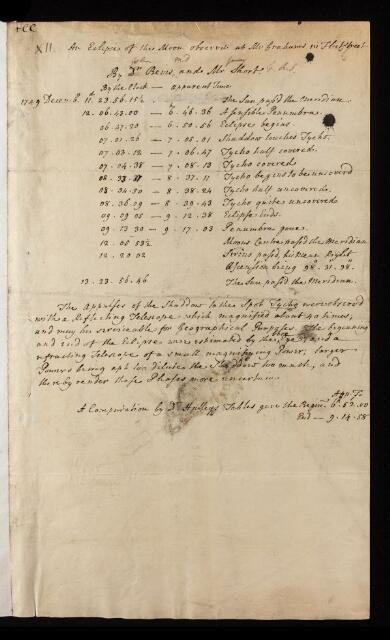 XII. An Eclipse of the Moon observed at Mr Grahams in Fleet street
John M.D. James
By Dr Bevis, and Mr Short F.R.S.
By the Clock — apparent Time
1749 Decemb. 11th 23.56.15½ The Sun pass'd the Meridian.
12. 06.43.00 — 6.46.36 A sensible Penumbra.
06.47.20 — 6.50.56 Eclipse begins.
07.01.26 — 7.05.01 Shaddow touches Tycho.
07.03.12 — 7.06.47 Tycho half covered.
07.04.38 — 7.08.13 Tycho covered
08.33.37 — 8.37.11 Tycho begins to be uncovered
08.34.50 — 8.38.24 Tycho half uncovered.
08.36.09 — 8.39.43 Tycho quite uncovered
09.09.05 — 9.12.38 Eclipse Ends.
09.13.30 — 9.17.03 Penumbra gone.
12.05.53½ Moons Center passed the Meridian
12.20.02 Sirius passed, his Mean Right
Ascension being 98°.31'.98"
13. 23.56.46 The Sun passed the Meridian.
The Appulses of the Shaddow to the Spot Tycho were observed
with a Reflecting Telescope which magnified about 40 times,
and may be serviceable for Geographical Purposes. The beginning
and End of the Eclipse were estimated by the Eye and a
refracting Telescope of a small magnifying Power; larger
Powers being apt to dilute the Shaddow too much, and
thereby render those Phases more uncertain.
App. T.
A Computation by Dr Halleys Tables gave the Beginn. 6h.52.00
End — 9.14.58